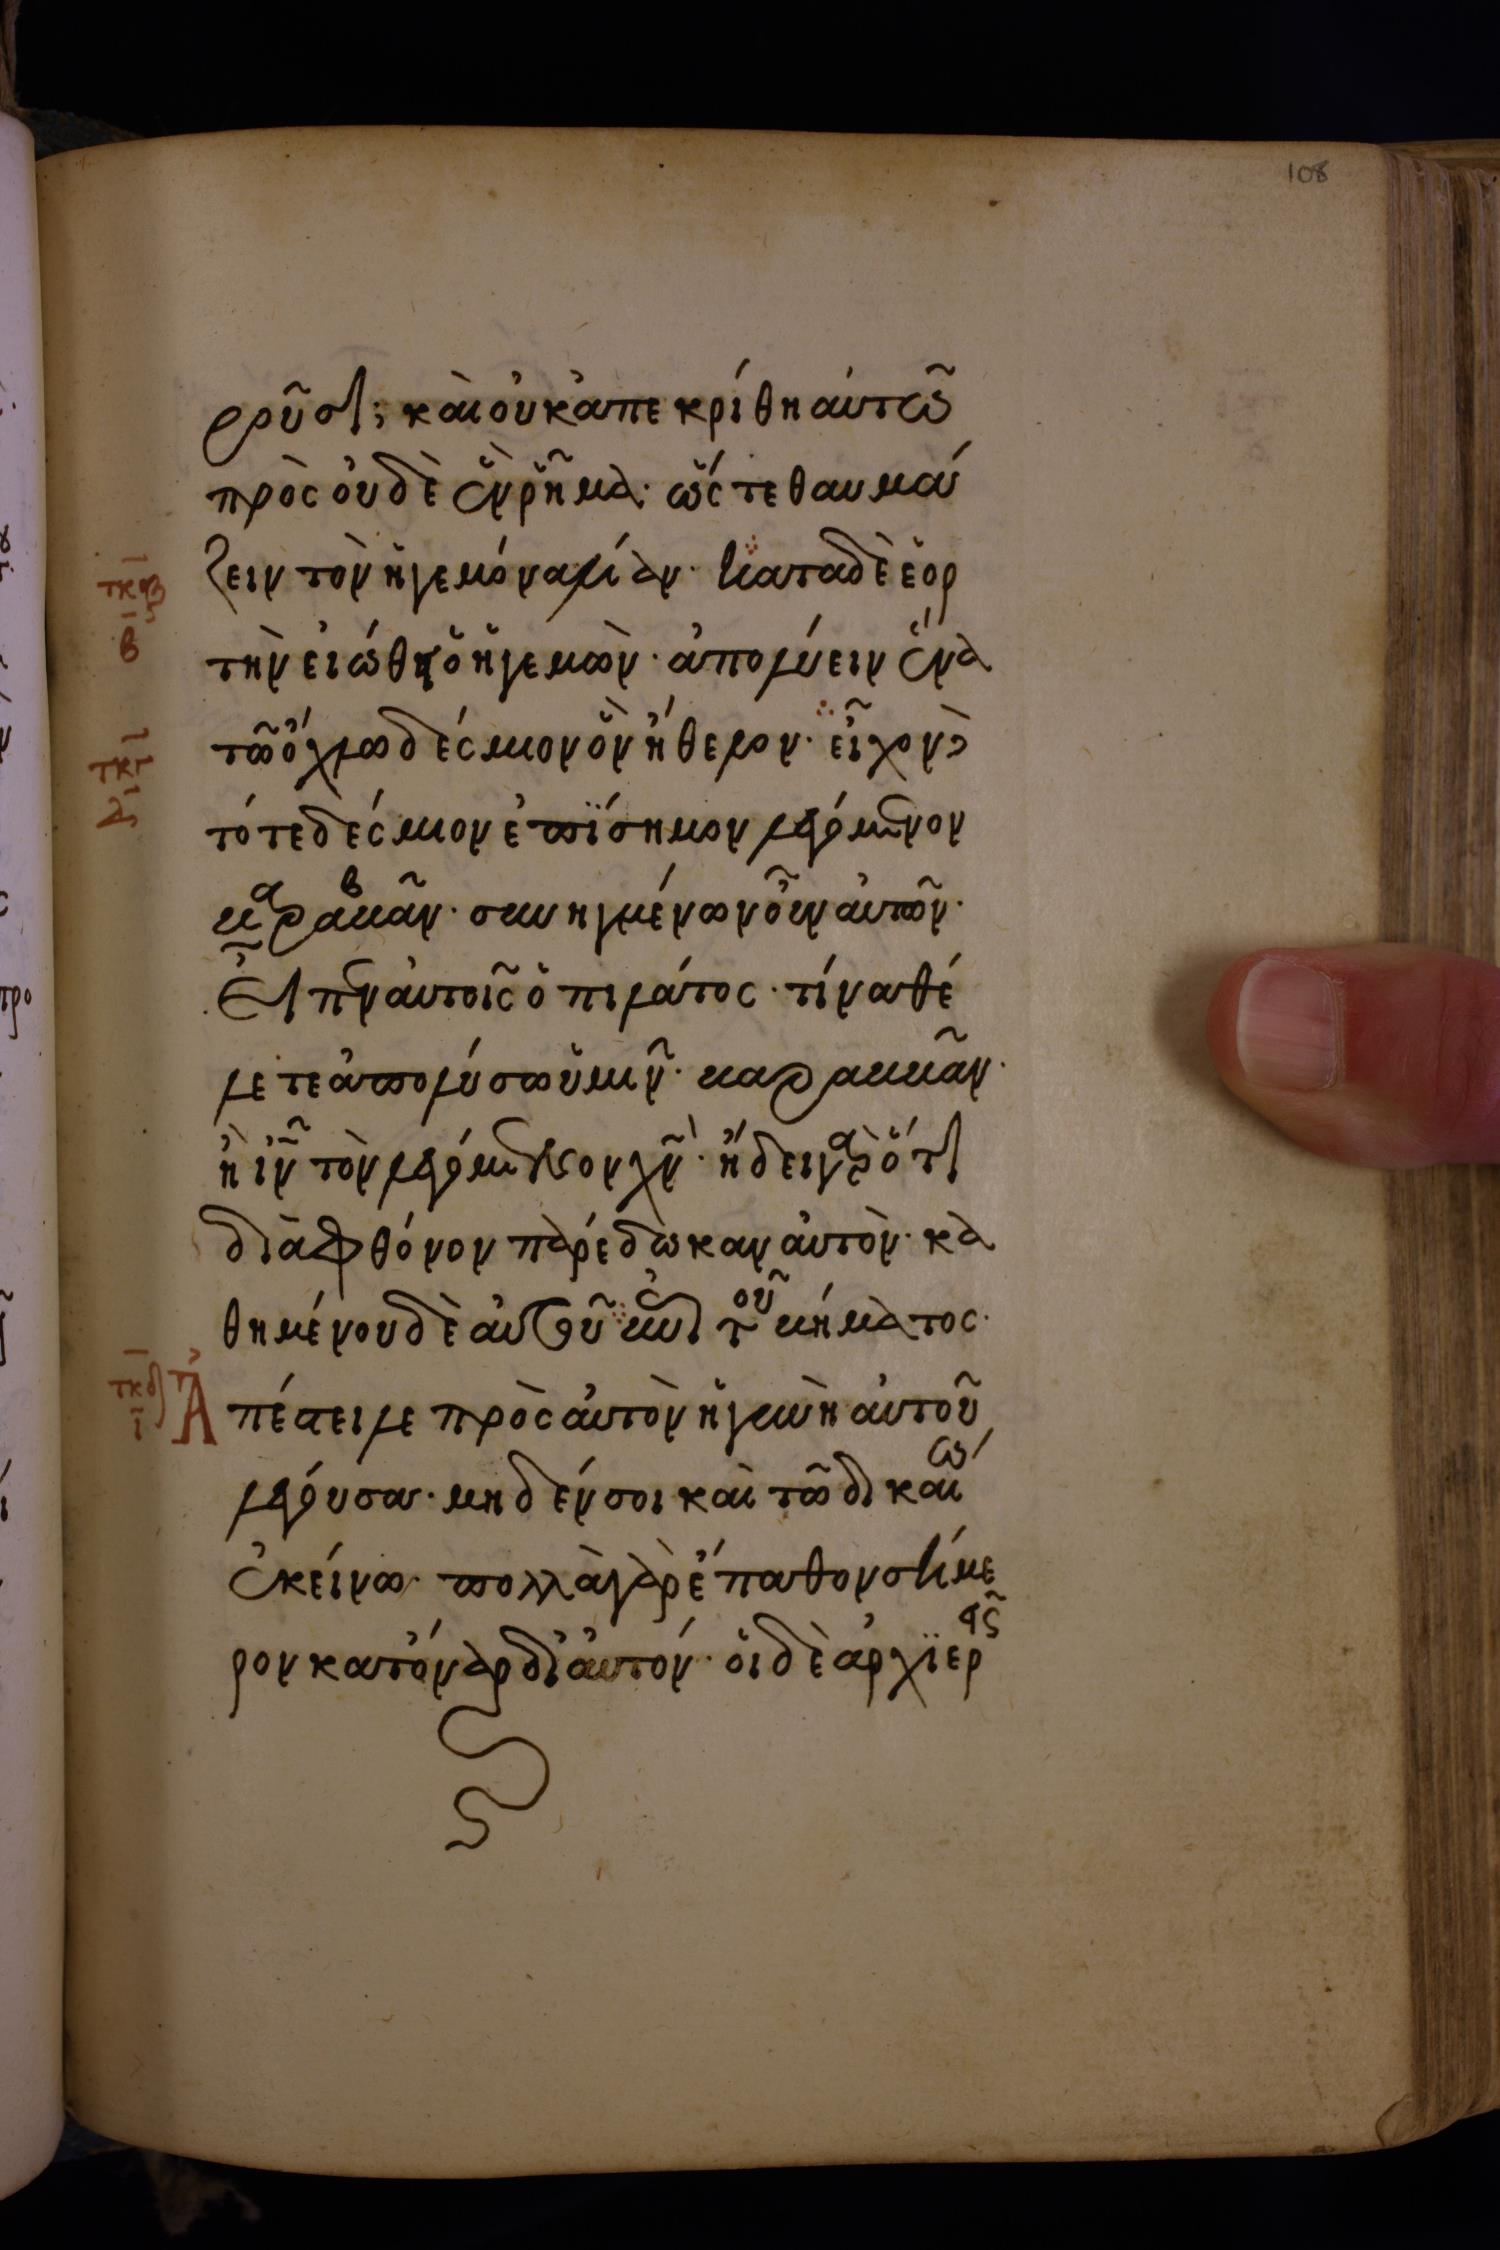 108
ροῦσι; καὶ οὐκ ἀπεκρίθη αὐτῶ
πρὸς οὐδὲ ἓν ῥῆμα· ὥστε θαυμά
ζειν τὸν ἡγεμόνα λίαν· κατα δὲ ἑορ
τκβ
β
τὴν εἰώθη ὁ ἡγεμὼν· ἀπολύειν ἕνα
τῶ ὄχλω δέσμιον ὃν ἤθελον· εἶχον δὲ
τκγ
δ
τότε δέσμιον ἐπίσημον λεγόμενον
βαραββᾶν· συνηγμένων οὖν αὐτῶν·
εἶπεν αὐτοῖς ὁ πιλάτος· τίνα θέ
λετε ἀπολύσω ὑμῖν· βαραββᾶν·
ἢ ιν τὸν λεγόμενον χν· ἤδει γὰρ ὅτι
διὰ φθόνον παρέδωκαν αὐτὸν· κα
θημένου δὲ αὐτοῦ ἐπὶ τοῦ βήματος·
τκδ
ι
Ἀπέστειλε πρὸς αὐτὸν ἡ γυνὴ αὐτοῦ
λέγουσα· μηδέν σοι καὶ τῶ δικαίω
ἐκείνω· πολλὰ γὰρ ἔπαθον σήμε
ρον κατόναρ δἰ αὐτόν· οἱ δὲ ἀρχϊερεῖς